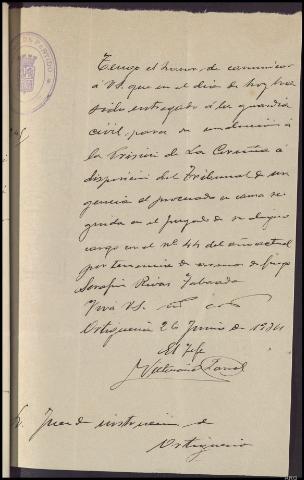 Tengo el honor de comunicar
á VS. que en el día de hoy han
sido entregado á la guardia
civil, para su conducción á
la Prisión de La Coruña á
disposición del Tribunal de ur
gencia el procesado en causa se
guida en el Juzgado de su digno
cargo en el nº 44 del año actual
por tenencia de armas de fuego
Serafín Rivas Taboada
Viva VS.
Ortigueira 26 Junio de 1934
El Jefe
Sr. Juez de instrucción de
Ortigueira